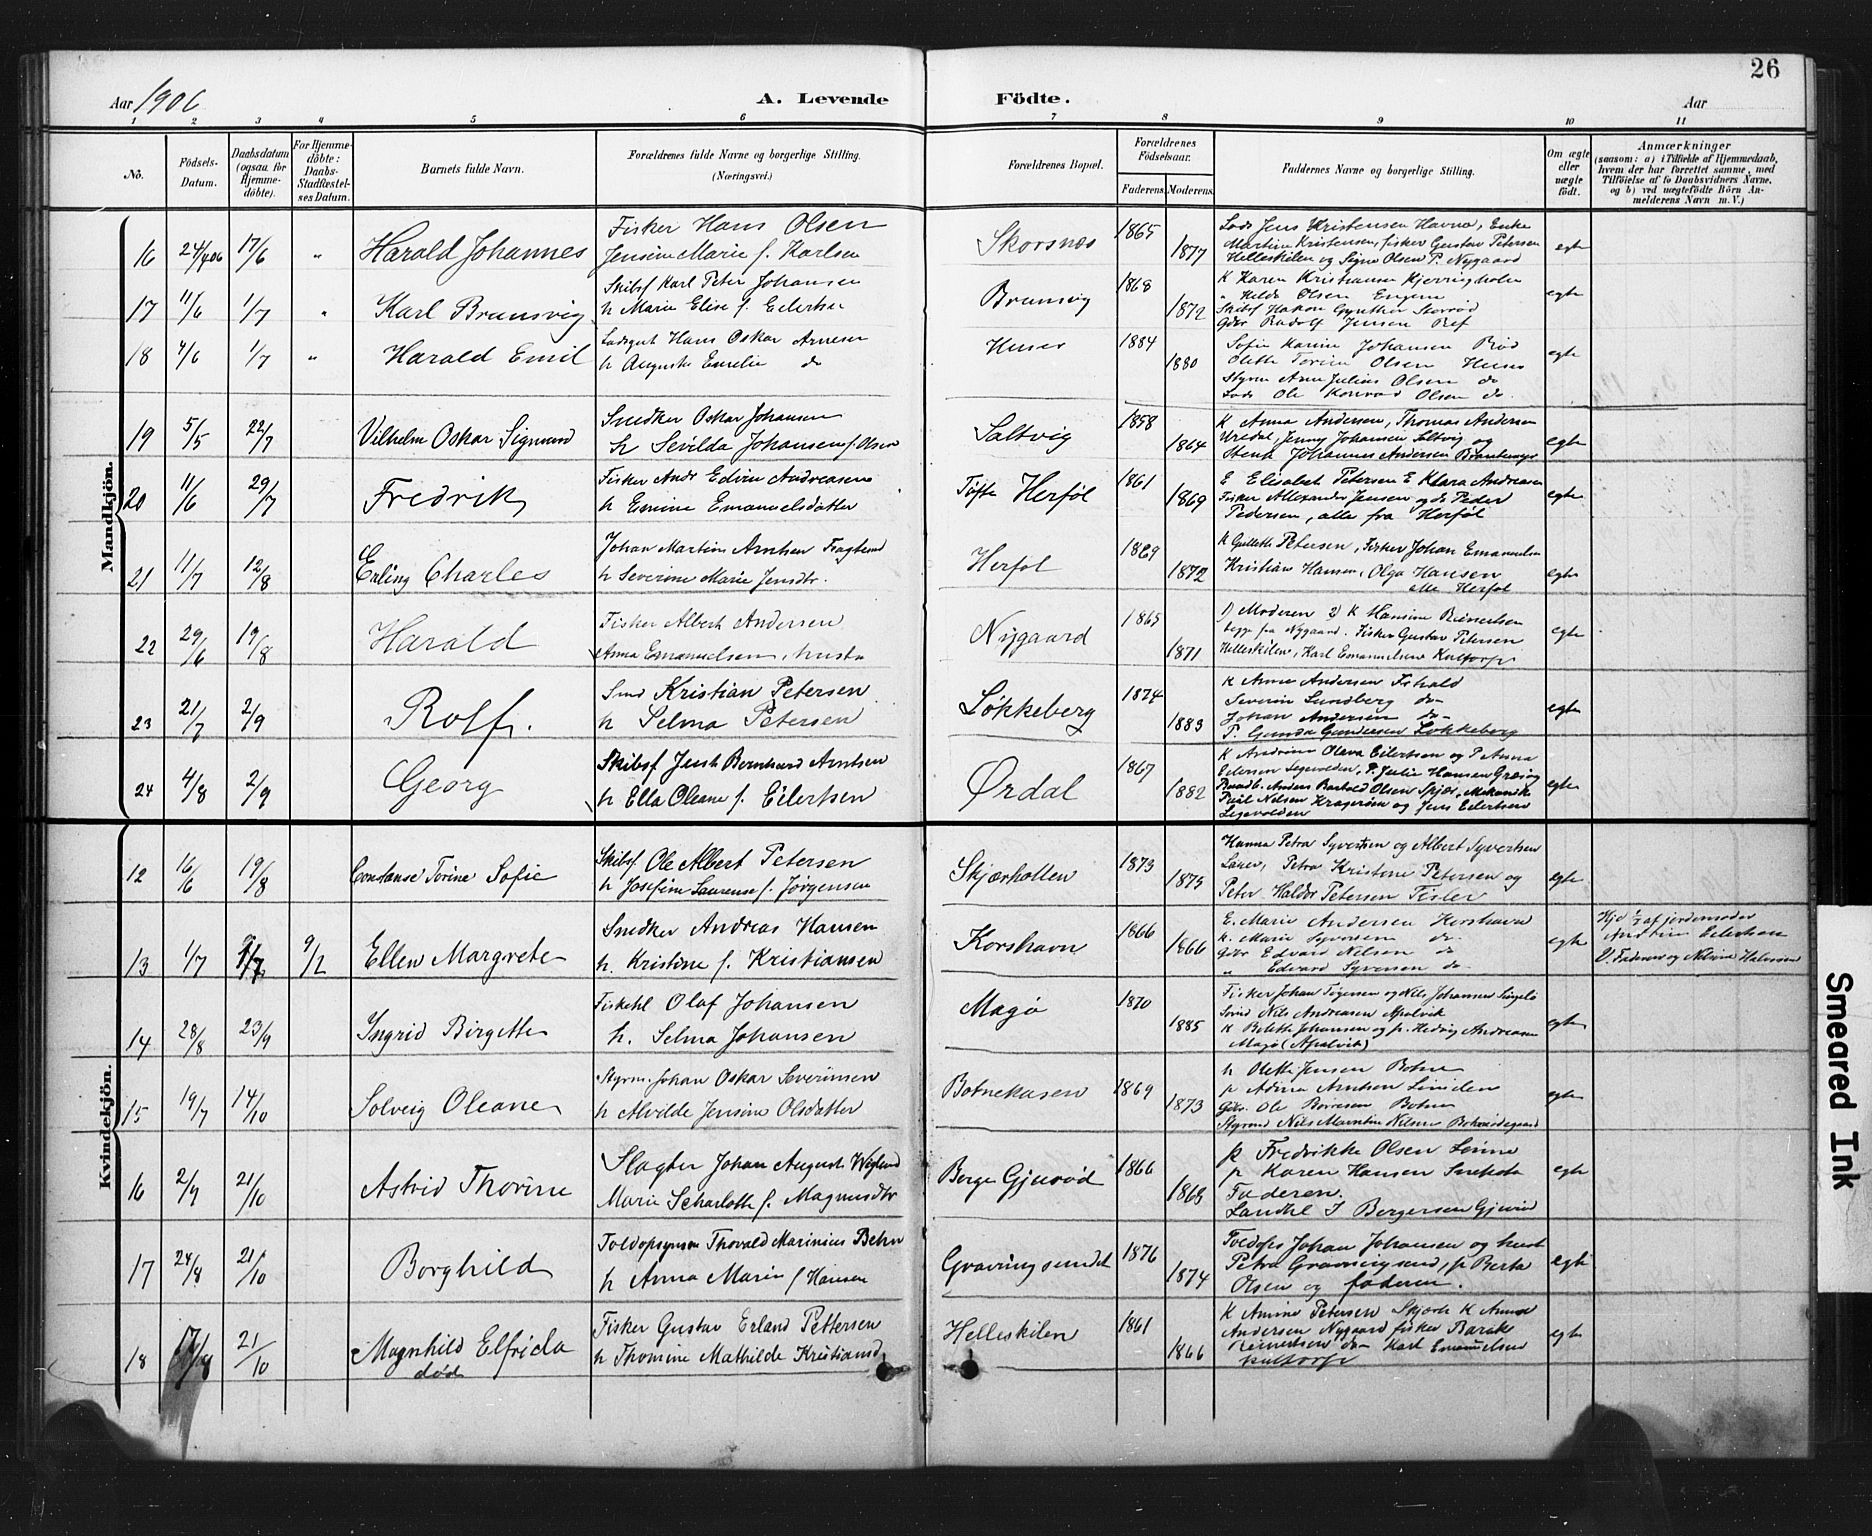 26
Aar 1906
A. Levende Födte.
Aar
1 2 3 4 5 6 7 8 9 10 11
No.
Födsels-Datum.
Daabsdatum (ogsaa for Hjemme-döbte).
For Hjemme-döbte: Daabs-Stadfæstel-ses Datum.
Barnets fulde Navn.
Forældrenes fulde Navne og borgerlige Stilling.
(Næringsvei.)
Forældrenes Bopæl.
Forældrenes Födselsaar.
Faderens. Moderens.
Faddernes Navne og borgerlige Stilling.
Om ægte eller uægte födt.
Anmærkninger
(saasom: a) i Tilfælde af Hjemmedaab, hvem der har forrettet samme, med Tilföielse af to Daabsvidners Navne, og b) ved uægtefödte Börn An-melderens Navn m. V.)
Mandkjön.
16 24/4 06 17/6 " Harald Johannes
Fisker Hans Olsen
Jensine Marie f. Karlsen
Skorsnæs 1865 1877
Lods Jens Kristensen Havnø, Enke
Martine Kristensen, fisker Gustav Petersen
Helleskilen og Signe Olsen P. Nygaard
egte
17 11/6 1/7 " Karl Brunsvig
Skibsf Karl Peter Johansen
h Marie Elise f. Eilertsen
Brunsvig 1868 1872
K Karen Kristiansen Kjerringholen
" Helda Olsen Engene
Skibsf Hakon Gynther Storrød
Gdbr Rudolf Jensen Ref
egte
18 4/6 1/7 " Harald Emil
Lodsgut Hans Oskar Arnesen
h Auguste Emilie do
Huser 1884 1880
Sofie Karine Johansen Rød
Olette Torine Olsen Huser
Styrm Arne Julius Olsen do
Lods Ole Konrad Olsen do.
egte
19 5/5 22/7 Vilhelm Oskar Sigmund
Snedker Oskar Johansen
h Sevilda Johansen f. Olsen
Saltvig 1858 1864
K Anna Andersen, Thomas Andersen
Urdal, Jenny Johansen Saltvig og
Stenh Johannes Andersen
egte
20 11/6 29/7 Fredrik
Fisker Andr Edvin Andreasen
h Emine Emanuelsdatter
Tøfte Herføl 1861 1869
E Elisabet Petersen E Klara Andreasen
Fisker Allexander Jensen og do Peder
Pedersen, alle fra Herføl
egte
21 11/7 12/8 Erling Charles
Johan Martin Arntsen
h Severine Marie Jensdtr.
Herføl 1869 1872
K Gullette Petersen, Fisker Johan Emanuelsen
Kristian Hansen, Olga Hansen
alle Herføl
egte
22 29/6 19/8 Harald
Fisker Albert Andersen
Anna Emanuelsen, hustr
Nygaard 1865 1871
1) Moderen 2) K Hansine Reinertsen
begge fra Nygaard. Fisker Gustav Petersen
Helleskilen, Karl Emanuelsen Kultorp
egte
23 21/7 2/9 Rolf.
Smd Kristian Petersen
h Selma Petersen
Løkkeberg 1874 1883
K Anna Andersen
Severin Lundberg do
Johan Andersen do
P. Gunda Gundersen Løkkeberg
egte
24 4/8 2/9 Georg
Skibsf Just Bernhard Arntsen
h Ella Oleane f. Eilertsen
Ørdal 1867 1882
K Andrine Olava Eilertsen og P. Anna
EilertsenLigevolden, P. Julie Hansen
Anders Bartold Olsen Spjær, Mekanik
Paul Nilsen Kragerøen og Jens Eilertsen
Ligevolden
egte
Kvindekjön.
12 16/6 19/8 Constanse Torine Sofie
Skibsf Ole Albert Petersen
h Josefine Laurense f. Jørgensen
Skjærhollen 1873 1875
Hanna Petra Syvertsen og Albert Syvertsen
Lauer, Petra Kristine Petersen og
Peter Haldor Petersen Tisler
egte
13 1/7 9/2 Ellen Margrete
Snedker Andreas Hansen
h. Kristine f. Kristiansen
Korshavn 1866 1866
E. Marie Andersen Korshavn
K. Marie Syversen do
Gdbr Edvard Nilsen do
" Edvard Syversen do
egte
Hjd 1/7 af jordemoder
Andrine Eilertsen
V. Faderen og Nilsine Halvorsen
14 28/8 23/9 Ingrid Birgette
Fiskehl Olaf Johansen
h. Selma Johansen
Magø 1870 1885
Fisker Johan Torgersen og Nils Johansen Singelø
Smd Nils Andreasen Apalvik
K Bolette Johansen og p. Hedvig Andreasen
Magø (Apalvik)
egte
15 19/7 14/10 Solveig Oleane
Styrm. Johan Oskar Severinsen
h Alvilde Jensine Olsdatter
Botnekasen 1869 1873
h Olette Jensen Botne
p Adma Arntsen
Gdbr. Ole Børresen Botne
Styrmd Nils Martin Nilsen
egte
16 2/9 21/10 Astrid Thorine
Slagter Johan August Weglund
Marie Scharlotte f. Magnusdtr
Berge Gjurød 1866 1868
p Fredrikke Olsen Linne
p Karen Hansen
Faderen.
Landhl J Børgersen Gjurød
egte
17 24/8 21/10 Borghild
Toldopsynsm Thorvald Marinius Behn
h Anna Marie f Hansen
Gravningsundet 1876 1874
Toldops Johan Johansen og hust
Petra Gravningsund, p Berta
Olsen og faderen.
egte
18 17/8 21/10 Magnhild Elfrida
død
Fisker Gustav Erland Pettersen
h Thomine Mathilde Kristiansd
Helleskilen 1861 1866
K Amine Petersen Skjæh K Anna
Andersen Nygaard fisker
Reinertsen do Karl Emanuelsen
Kultorp
egte
Smeared Ink